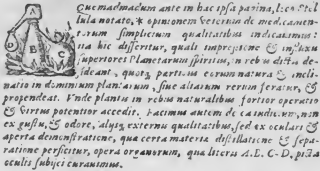 Quemadmodum ante in hac ipsa pagina, sic Stel
lula notato, * opinionem veterum de medicamen-
torum simplicium qualitatibus indicavimus:
ita hic disseritur, quali impressione & influxu
superiores Planetarum spiritus, in rebus dicta de-
sideant, quotq; partibus eorum natura & incli-
natio in dominium plantarum, sive aliarum rerum feratur, &
propendeat. Vnde plantis in rebus naturalibus fortior operatio
& virtus potentior accedit. Facimus autem de causis eorum, non
ex gustu, & odore, alijsq; externis qualitatibus, sed ex oculari &
aperta demonstratione, qua certa materia distillatione & sepa-
ratione perficitur, opera organorum, qua literis A. E. C. D. pictis
oculis subijci curavimus.
A
D
B
C